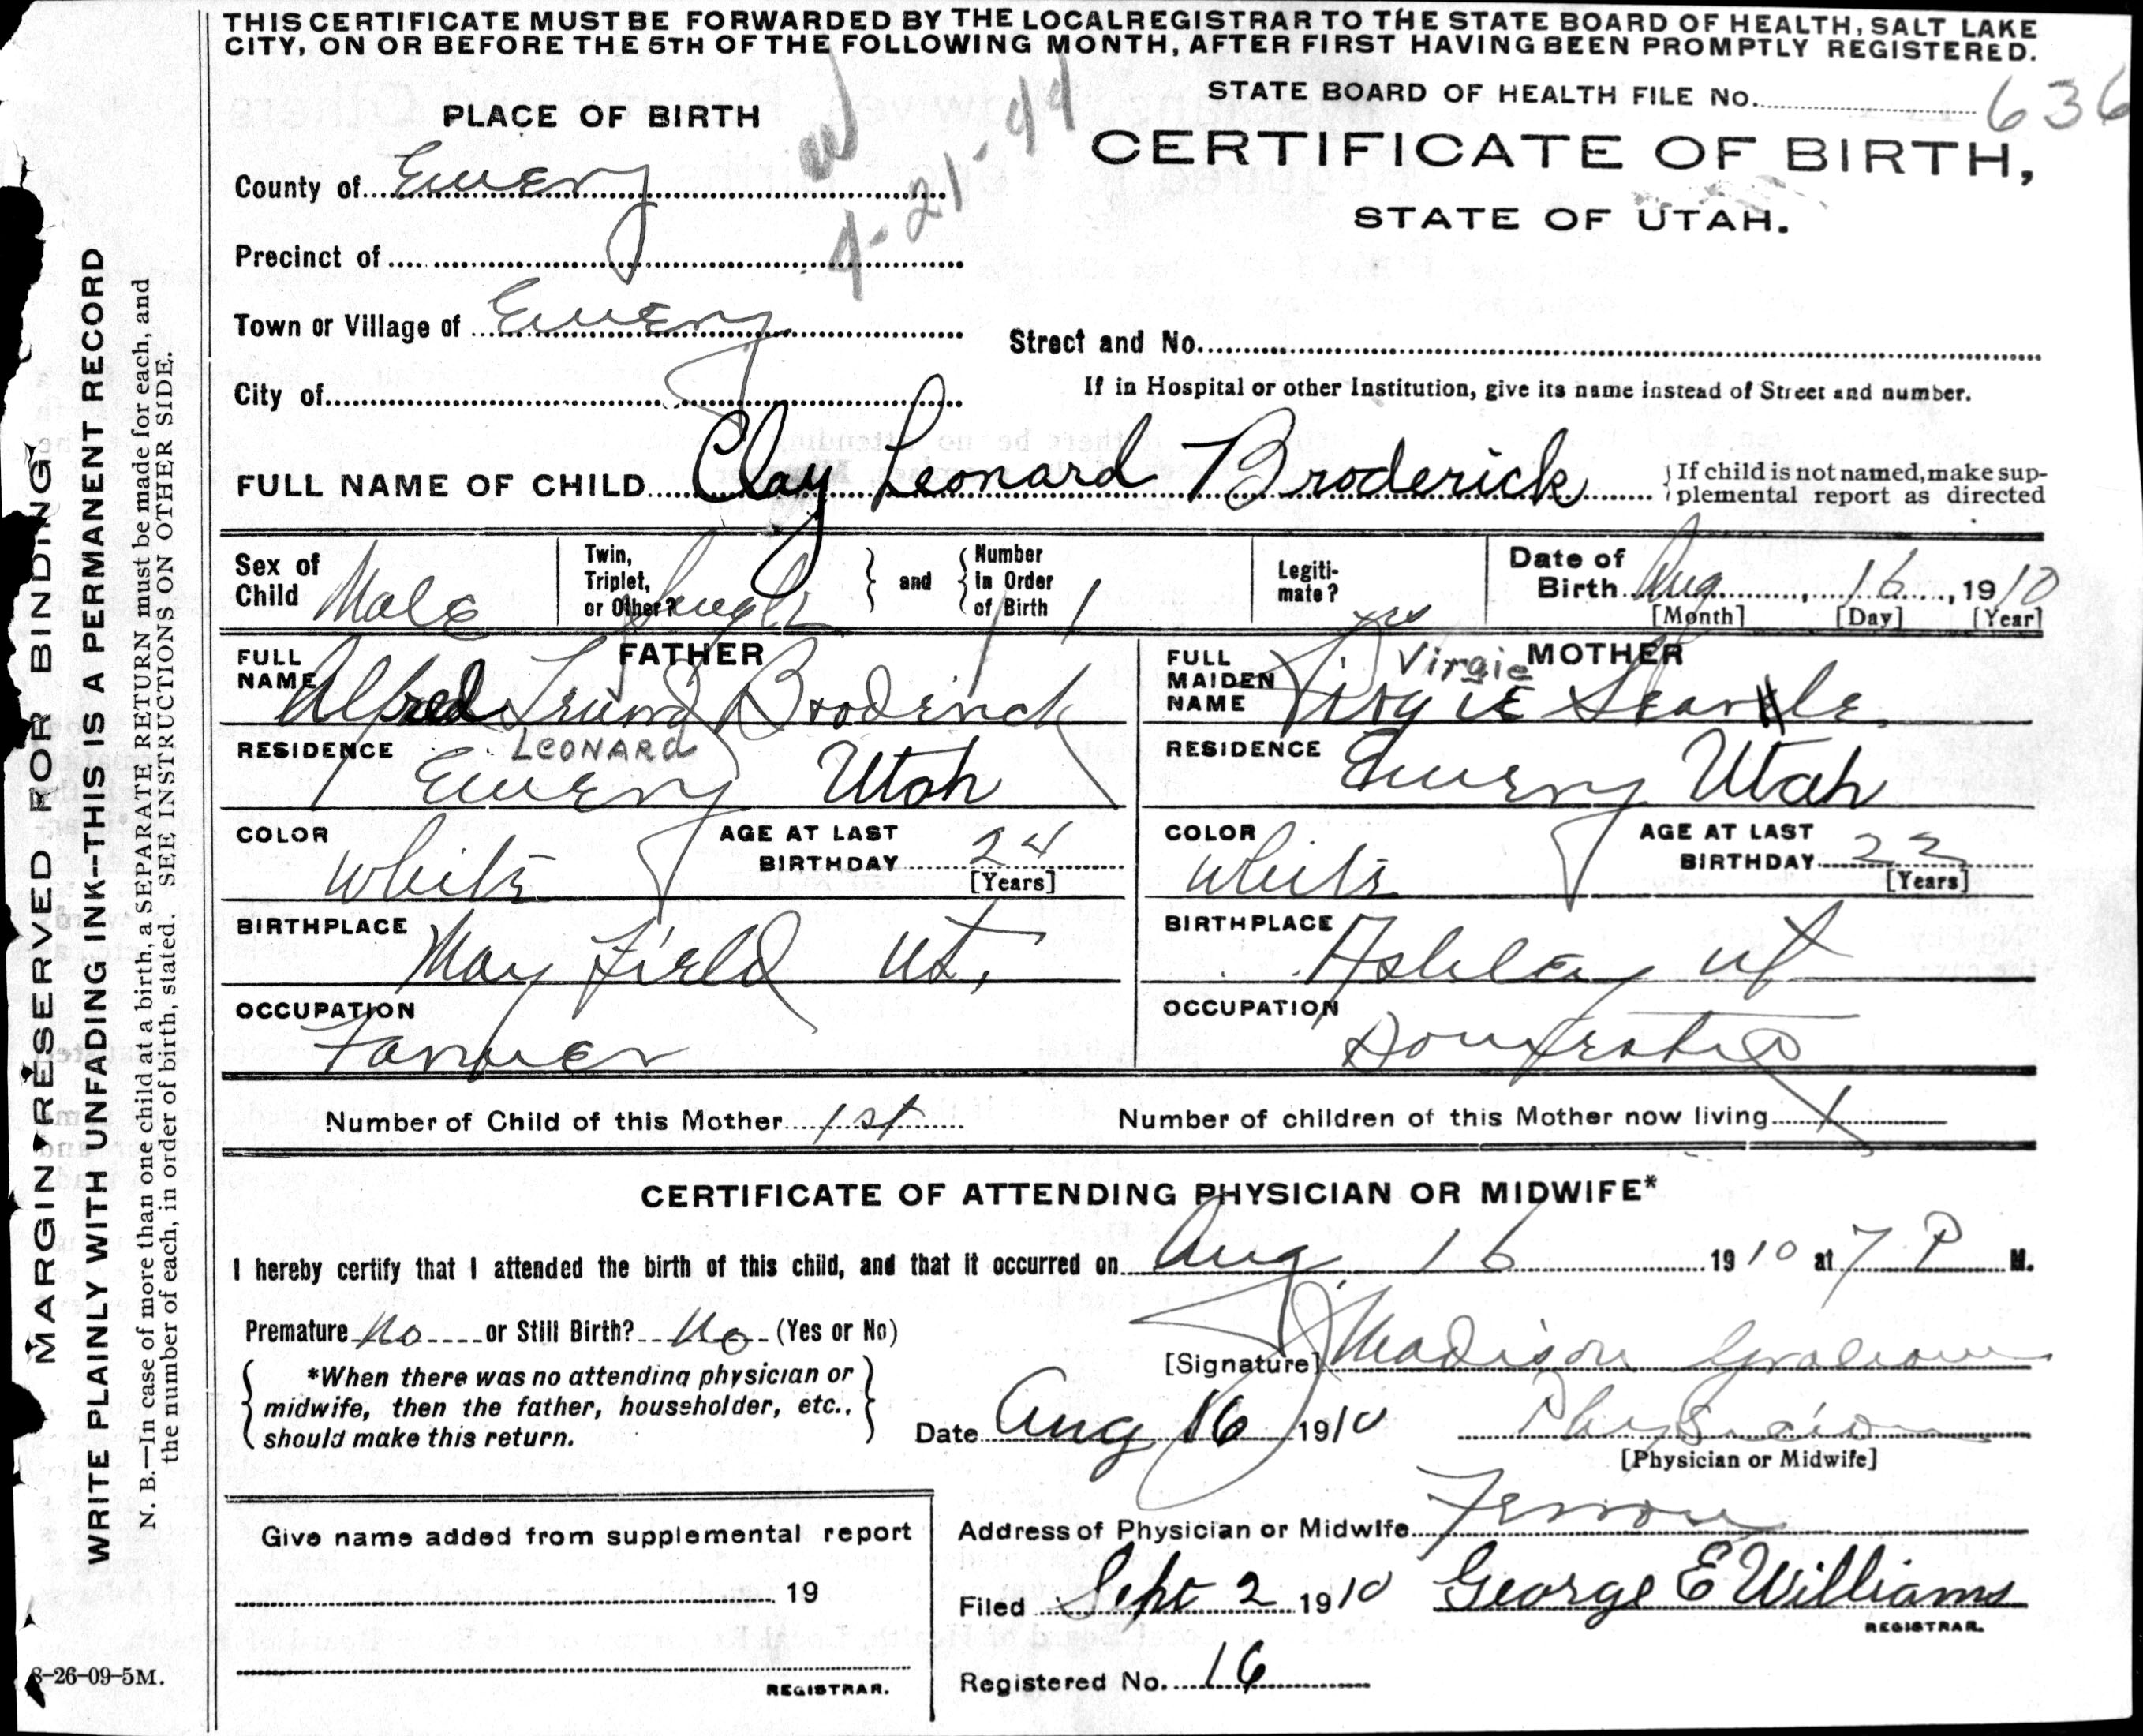 THIS CERTIFICATE MUST BE FORWARDED BY THE LOCAL REGISTRAR TO THE STATE BOARD OF HEALTH, SALT LAKE
CITY, ON OR BEFORE THE 5TH OF THE FOLLOWING MONTH, AFTER FIRST HAVING BEEN PROMPTLY REGISTERED.
STATE BOARD OF HEALTH FILE No. 636
PLACE OF BIRTH
4-21-44
CERTIFICATE OF BIRTH,
STATE OF UTAH.
County of Emery
Precinct of
Town or Village of Emery
Street and No.
City of
If in Hospital or other Institution, give its name instead of Street and number.
FULL NAME OF CHILD Clay Leonard Broderick
If child is not named, make sup-
plemental report as directed
Sex of Child Male
Twin, Triplet, or Other?
and
Number in Order of Birth 1
Legiti-mate? yes
Date of Birth Aug 16, 1910
[Month] [Day] [Year]
FATHER
FULL NAME Alfred Broderick
LEONARD
MOTHER
Virgie
FULL MAIDEN NAME Virgie Searle
RESIDENCE Emery Utah
RESIDENCE Emery Utah
COLOR White
AGE AT LAST BIRTHDAY 24
[Years]
COLOR White
AGE AT LAST BIRTHDAY 23
[Years]
BIRTHPLACE May Field Ut,
BIRTHPLACE Ashley Ut
OCCUPATION Farmer
OCCUPATION Domestic
Number of Child of this Mother 1st
Number of children of this Mother now living 1
CERTIFICATE OF ATTENDING PHYSICIAN OR MIDWIFE*
I hereby certify that I attended the birth of this child, and that it occurred on Aug 16 1910 at 7 P M.
Premature No or Still Birth? No (Yes or No)
[Signature] J Madison Graham
*When there was no attending physician or
midwife, then the father, householder, etc.,
should make this return.
Date Aug 16 1910
Physician
[Physician or Midwife]
Give name added from supplemental report
19
REGISTRAR.
Address of Physician or Midwife Ferron
Filed Sept 2 1910 George E Williams
REGISTRAR.
Registered No. 16
MARGIN RESERVED FOR BINDING
WRITE PLAINLY WITH UNFADING INK--THIS IS A PERMANENT RECORD
N. B.—In case of more than one child at a birth, a SEPARATE RETURN must be made for each, and
the number of each, in order of birth, stated. SEE INSTRUCTIONS ON OTHER SIDE.
8-26-09-5M.